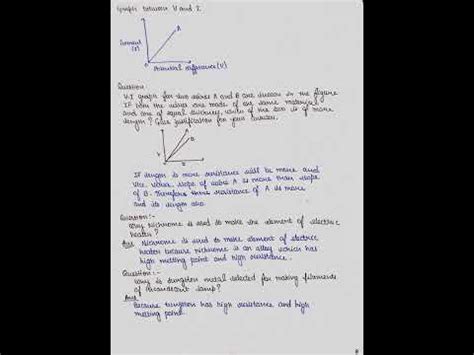 Graph between V and I
A
Current
(I)
O
Potential difference (V)
Question
V.I graph for two wires A and B are shown in the figure
If both the wires are made of same material
and are of equal thickness, which of the two is of more
length? Give justification for your answer.
A
B
V
If length is more resistance will be more and
vice versa, slope of wire A is more than slope
of B. Therefore resistance of A is more
and its length also
Question:-
Why nichrome is used to make the element of electric
heater?
Ans Nichrome is used to make element of electric
heater because nichrome is an alloy which has
high melting point and high resistance.
Question:-
Why is tungsten metal selected for making filaments
of incandescent lamp?
Ans
Because tungsten has high resistance and high
melting point